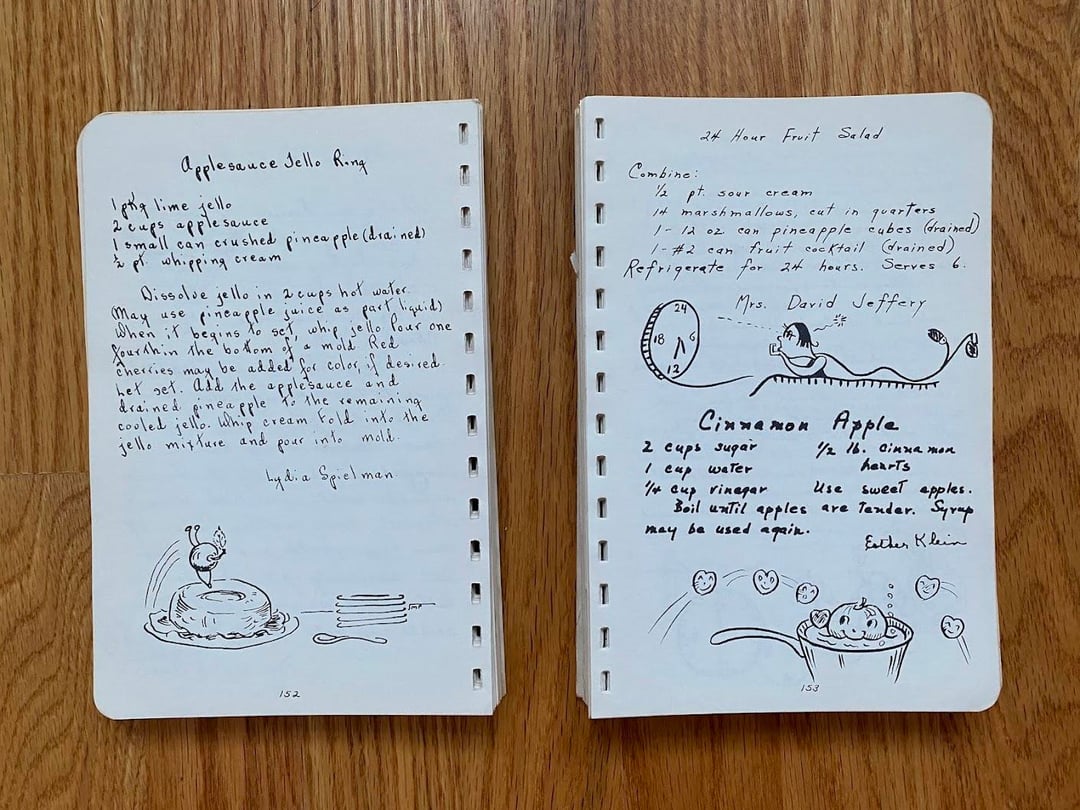 Applesauce Jello Ring
1 pkg lime jello
2 cups applesauce
1 small can crushed pineapple (drained)
½ pt. whipping cream
Dissolve jello in 2 cups hot water.
May use pineapple juice as part liquid)
When it begins to set, whip jello Pour one
fourth in the bottom of a mold Red
cherries may be added for color, if desired.
Let set. Add the applesauce and
drained pineapple to the remaining
cooled jello. Whip cream Fold into the
jello mixture and pour into mold.
Lydia Spielman
152
24 Hour Fruit Salad
Combine:
½ pt. sour cream
14 marshmallows, cut in quarters
1 - 12 oz can pineapple cubes (drained)
1 - #2 can fruit cocktail (drained)
Refrigerate for 24 hours. Serves 6.
Mrs. David Jeffery
24
18 6
12
Cinnamon Apple
2 cups sugar ½ lb. cinnamon
1 cup water hearts
¼ cup vinegar Use sweet apples.
Boil until apples are tender. Syrup
may be used again.
Esther Klein
153